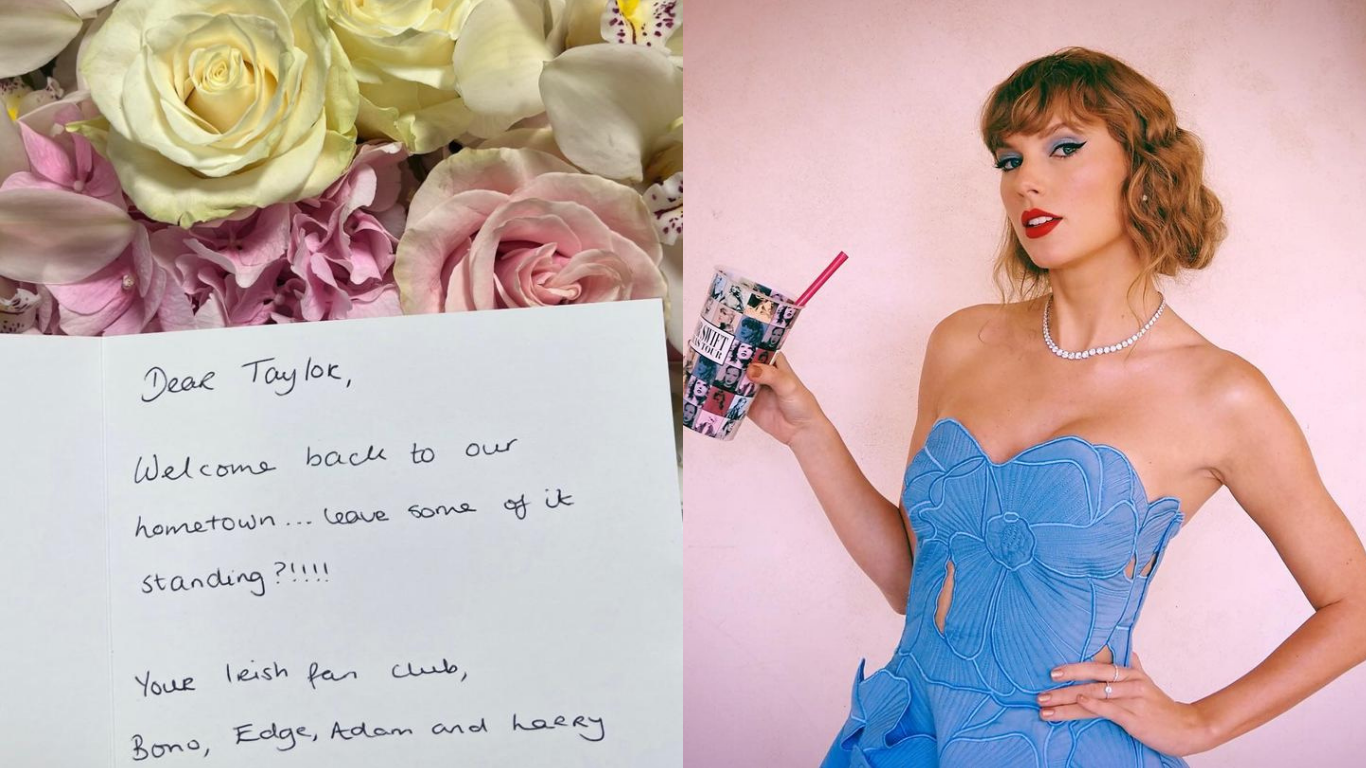 Dear Taylor,
Welcome back to our
hometown... leave some of it
standing?!!!!
Your Irish fan club,
Bono, Edge, Adam and Larry
SWIFT
TOUR